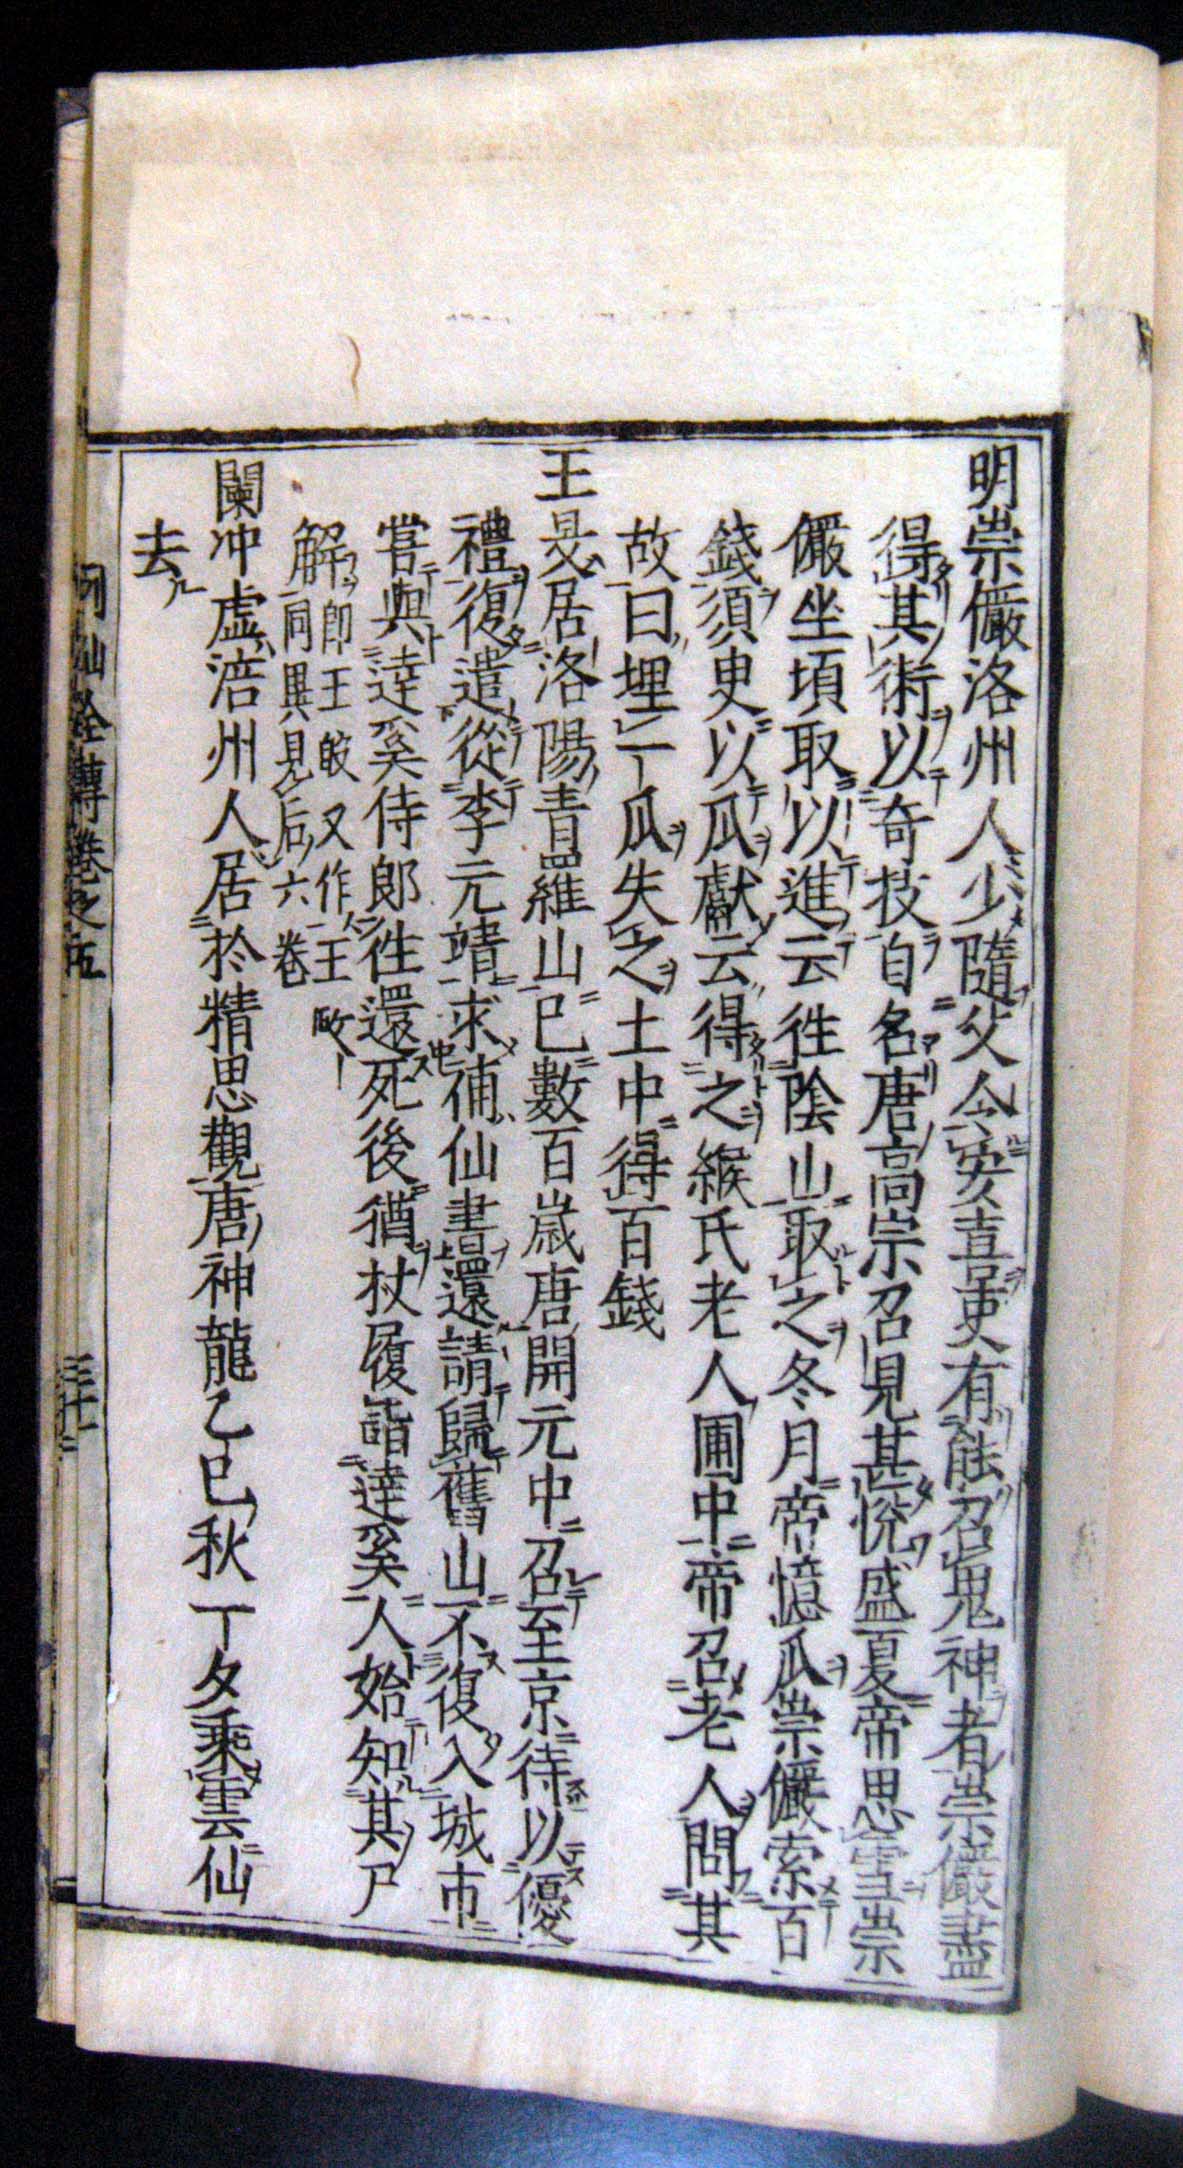 明崇儼洛州人少隨父令安喜吏有能召鬼神者崇儼盡
得其術以奇技自名唐高宗召見甚悅盛夏帝思雪崇
儼坐頃取以進云徃陰山取之冬月帝憶瓜崇儼索百
錢須臾以瓜獻云得之緱氏老人圃中帝召老人問其
故曰埋一瓜失之土中得百錢
王旻居洛陽青羅山已數百歲唐開元中召至京待以優
禮復遣從李元靖求補仙書還請歸舊山不復入城市
嘗與達奚侍郎徃還死後猶杖履詣達奚人始知其尸
解即王皎又作王旼
同異見后六卷
闌冲虛涪州人居於精思觀唐神龍乙巳秋一夕乘雲仙
去
列仙全傳卷之五
三十二